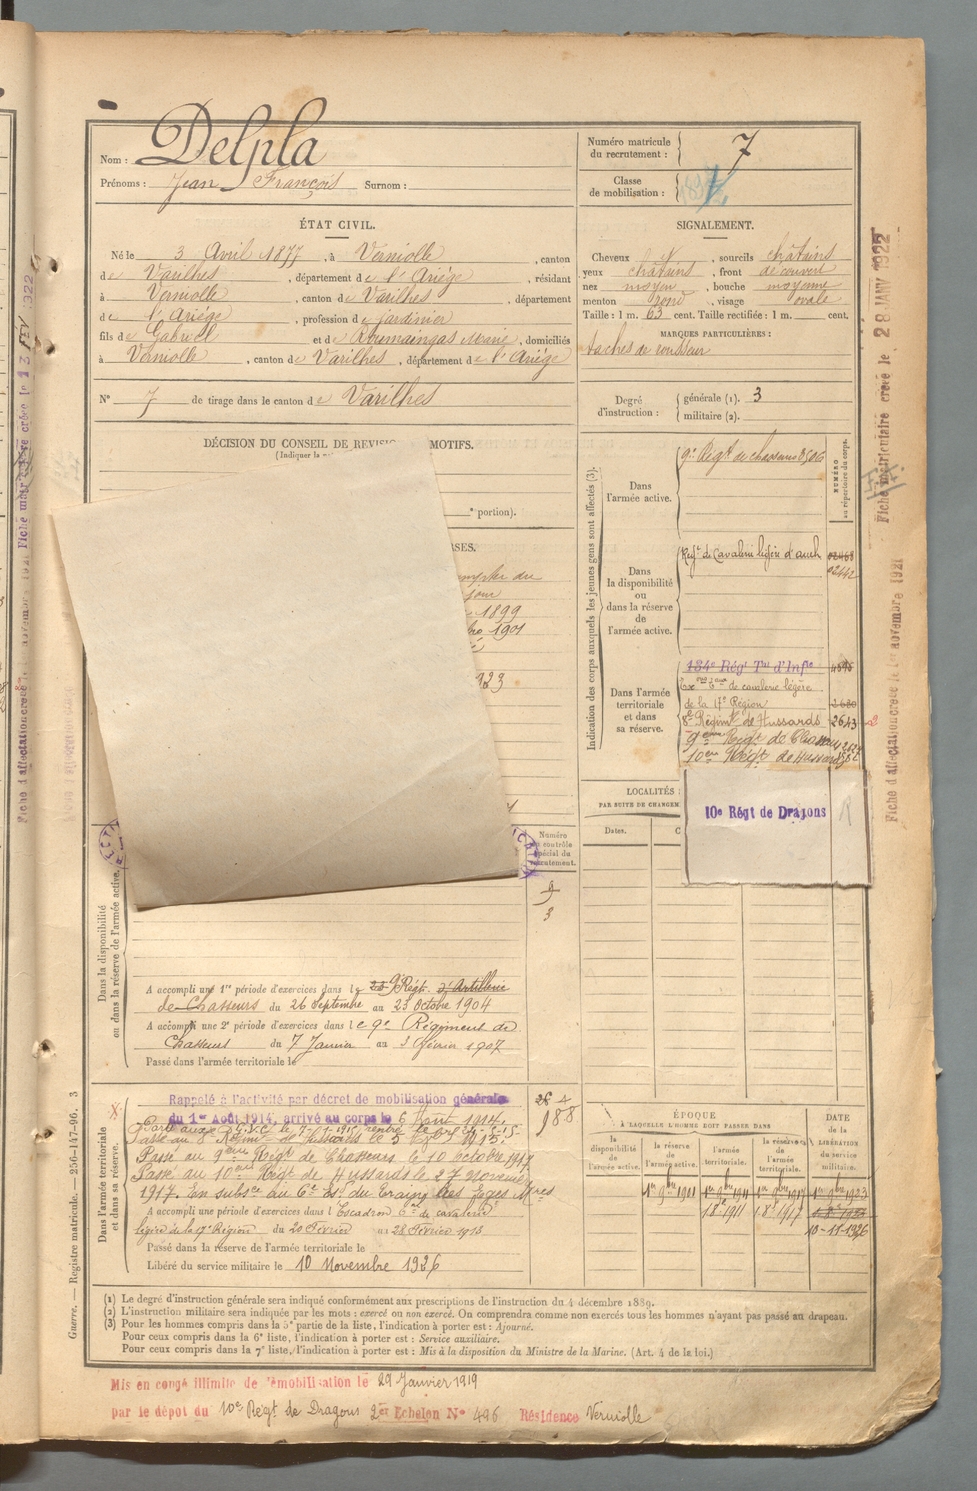 Nom : Delpla
Prénoms : Jean François Surnom :
Numéro matricule du recrutement : 7
Classe de mobilisation :
ÉTAT CIVIL.
Né le 3 Avril 1877, à Verniolle, canton
de Varilhes, département de l'Ariège, résidant
à Verniolle, canton de Varilhes, département
de l'Ariège, profession de jardinier
fils de Gabriel et de Marie, domiciliés
à Verniolle, canton de Varilhes, département de l'Ariège
N° 7 de tirage dans le canton de Varilhes
SIGNALEMENT.
Cheveux , sourcils châtains
yeux châtains, front découvert
nez moyen, bouche moyenne
menton rond, visage ovale
Taille : 1 m. 63 cent. Taille rectifiée : 1 m. cent.
MARQUES PARTICULIÈRES :
taches de rousseur
Degré d'instruction : générale (1). 3
militaire (2).
DÉCISION DU CONSEIL DE REVISI MOTIFS.
(Indiquer la
portion).
1899
1901
Indication des corps auxquels les jeunes gens sont affectés (3).
NUMÉRO au répertoire du corps.
Dans l'armée active.
9e Régt de chasseurs 8506
Dans la disponibilité ou dans la réserve de l'armée active.
Regt de Cavalerie légère d'auch
02442
Dans l'armée territoriale et dans sa réserve.
134e Régt Tal d'Infie
de cavalerie légère
de la 17e Région 2680
8e Régimt de Hussards 2643
9eme Régt de Chasseurs
10eme Régt de Hussards
10e Régt de Dragons
LOCALITÉS
PAR SUITE DE CHANGEM
Dates.
Numéro au contrôle spécial du recrutement.
3
Dans la disponibilité ou dans la réserve de l'armée active.
A accompli une 1re période d'exercices dans le 9e Régt d'Artillerie
de Chasseurs du 26 Septembre au 23 Octobre 1904
A accompli une 2e période d'exercices dans le 9e Régiment de
Chasseurs du 7 Janvier au 3 février 1907
Passé dans l'armée territoriale le
Dans l'armée territoriale et dans sa réserve.
Rappelé à l'activité par décret de mobilisation générale
du 1er Août 1914, arrivé au corps le 6 Août 1914.
Passé au 8e Régimt de Hussards le 5 1915.
Passé au 9eme Régt de Chasseurs le 10 Octobre 1917
Passé au 10eme Régt de Hussards le 27 Novembre
1917. En subsce au 6e du Train des
A accompli une période d'exercices dans l'Escadron de cavalerie
légère de la 17e Région du 20 Février au 28 Février 1913
Passé dans la réserve de l'armée territoriale le
Libéré du service militaire le 10 Novembre 1926
988
ÉPOQUE
À LAQUELLE L'HOMME DOIT PASSER DANS
DATE DE LA LIBÉRATION du service militaire.
la disponibilité de l'armée active.
la réserve de l'armée active.
l'armée territoriale.
la réserve de l'armée territoriale.
1er 9bre 1901 1er 9bre 1911 1er 9bre 1917 1er 9bre 1923
1.8.1911 1.8.1917
10-11-1926
(1) Le degré d'instruction générale sera indiqué conformément aux prescriptions de l'instruction du 4 décembre 1889.
(2) L'instruction militaire sera indiquée par les mots : exercé ou non exercé. On comprendra comme non exercés tous les hommes n'ayant pas passé au drapeau.
(3) Pour les hommes compris dans la 5e partie de la liste, l'indication à porter est : Ajourné.
Pour ceux compris dans la 6e liste, l'indication à porter est : Service auxiliaire.
Pour ceux compris dans la 7e liste, l'indication à porter est : Mis à la disposition du Ministre de la Marine. (Art. 4 de la loi.)
Mis en congé illimité de démobilisation le 29 Janvier 1919
par le dépôt du 10e Régt de Dragons 2e Echelon N° 496 Résidence Verniolle
Guerre. — Registre matricule. — 256-147-96. 3
Fiche matriculaire créée le 28 JANV 1922
Fiche d'affectation créée le 1er novembre 1921